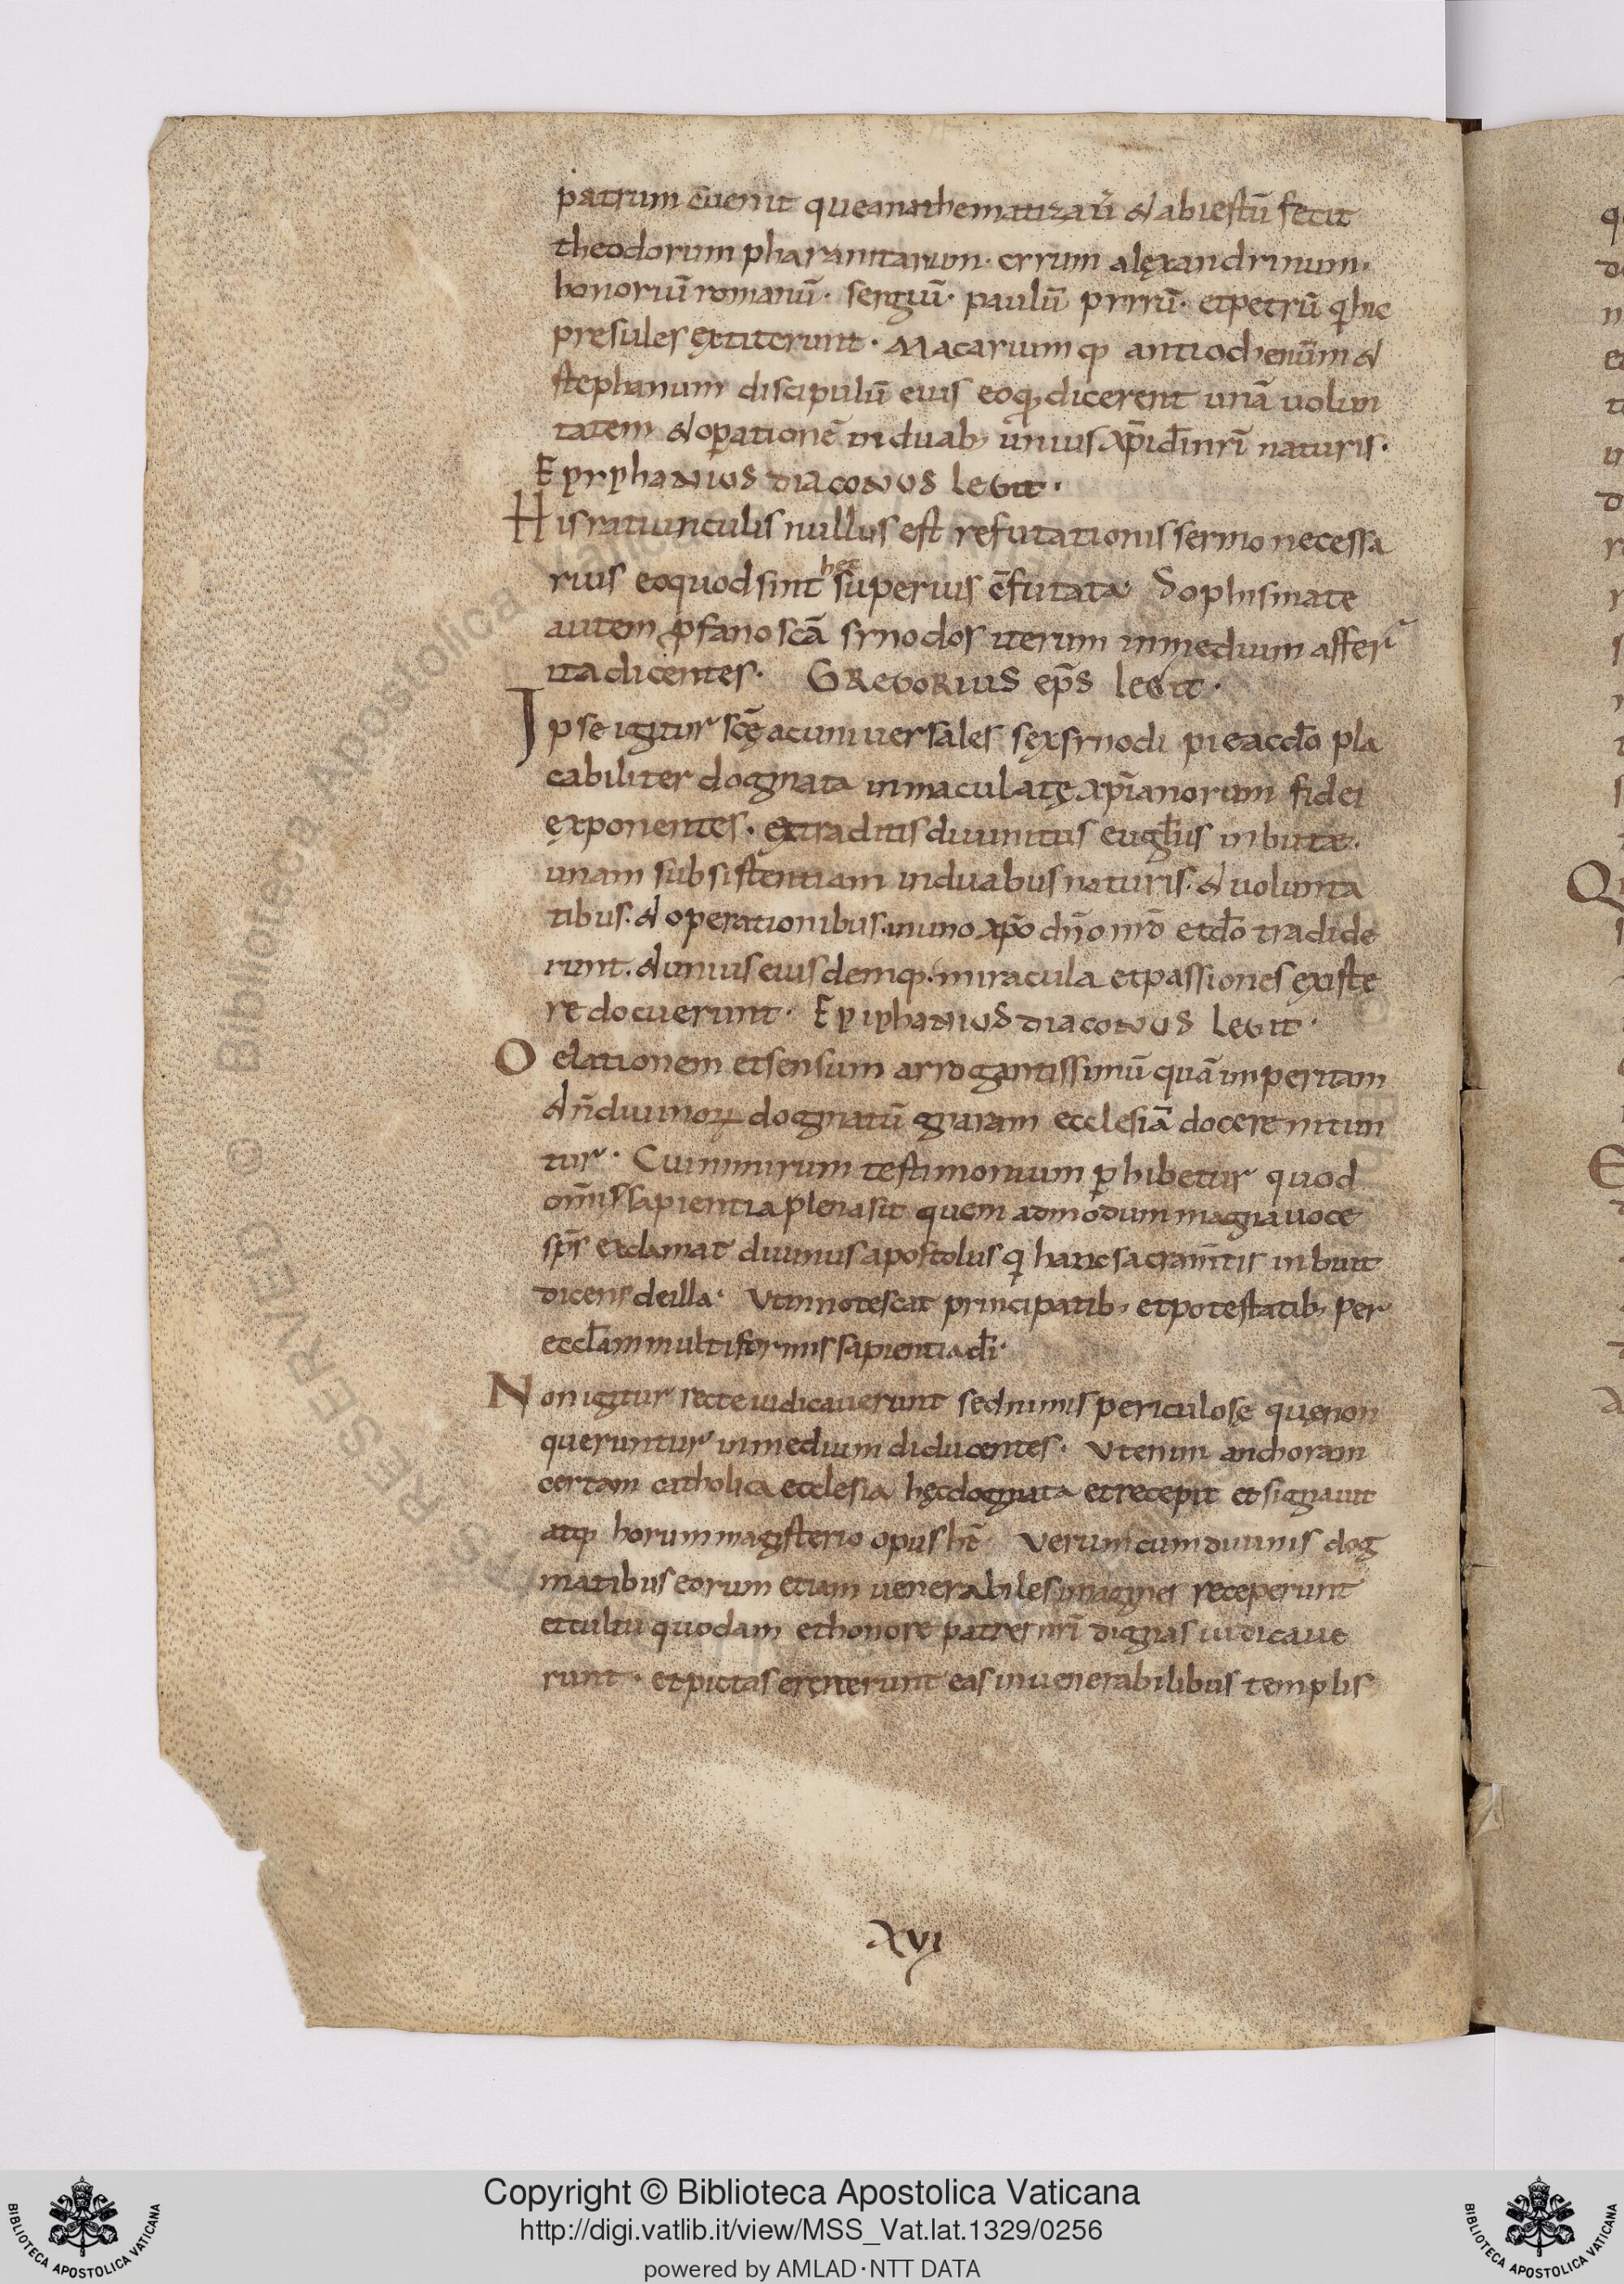 patrum cūenit que anathematizauͥ & abiectū fecit
theodorum pharanitanum· cyrum alęxandrinum·
honoriū romanū· sergiū· paulū pyrrū· et petrū q̄ hic
presules ęxtiterunt· Macariumq; antiochenum &
stephanum discipulū eius eoq; dicerent unā uolun
tatem & oꝑationē in duab; unius xp̄i dī nr̄i naturis·
Epyphanius diaconus legit·
His ratiunculis nullus est refutationis sermo necessa
rius eo quod sint hec superius cōfutata· Sophismate
autem ꝓfano scā synodos iterum in medium affer̄
ita dicentes· Gregorius ep̄s legit·
Ipse igitur scę̄ ac uniuersales sex synodi pie ac dō pla
cabiliter dogmata inmaculatę xp̄ianorum fidei
exponentes· ex traditis diuinitus eugl̄iis inbutæ·
unam subsistentiam in duabus naturis· & uolunta
tibus· & operationibus· in uno xp̄o dn̄o nr̄o et dō tradide
runt· & unius eiusdemq; miracula et passiones existe
re docuerunt· Epiphanius diaconus legit·
O elationem et sensum arrogantissimū quā imperitam
& n̄ diuinoꝝ dogmatū gnaram ecclesiā docere nitun
tur· Cui nimirum testimonium ꝑhibetur quod
om̄is sapientia plena sit quem admodum magna uoce
sp̄s exclamat diuinus apostolus q̄ hanc sacram̄tis inbuit
dicens de illa· Ut innotescat principatib; et potestatib; per
eccl̄am multiformis sapientia dī·
Non igitur recte iudicauerunt sed nimis periculosę quę non
queruntur in medium diducentes· Ut enim anchoram
certam catholica ecclesia hęc dogmata et recepit et signauit
atq; horum magisterio opus ht̄· Verum cum diuinis dog
matibus eorum etiam uenerabiles imagines receperunt
et cultu quodam et honore patres nr̄i dignas iudicaue
runt· et pictas erexerunt eas in uenerabilibus templis
XVI
Copyright © Biblioteca Apostolica Vaticana
http://digi.vatlib.it/view/MSS_Vat.lat.1329/0256
powered by AMLAD·NTT DATA
BIBLIOTECA APOSTOLICA VATICANA
BIBLIOTECA APOSTOLICA VATICANA